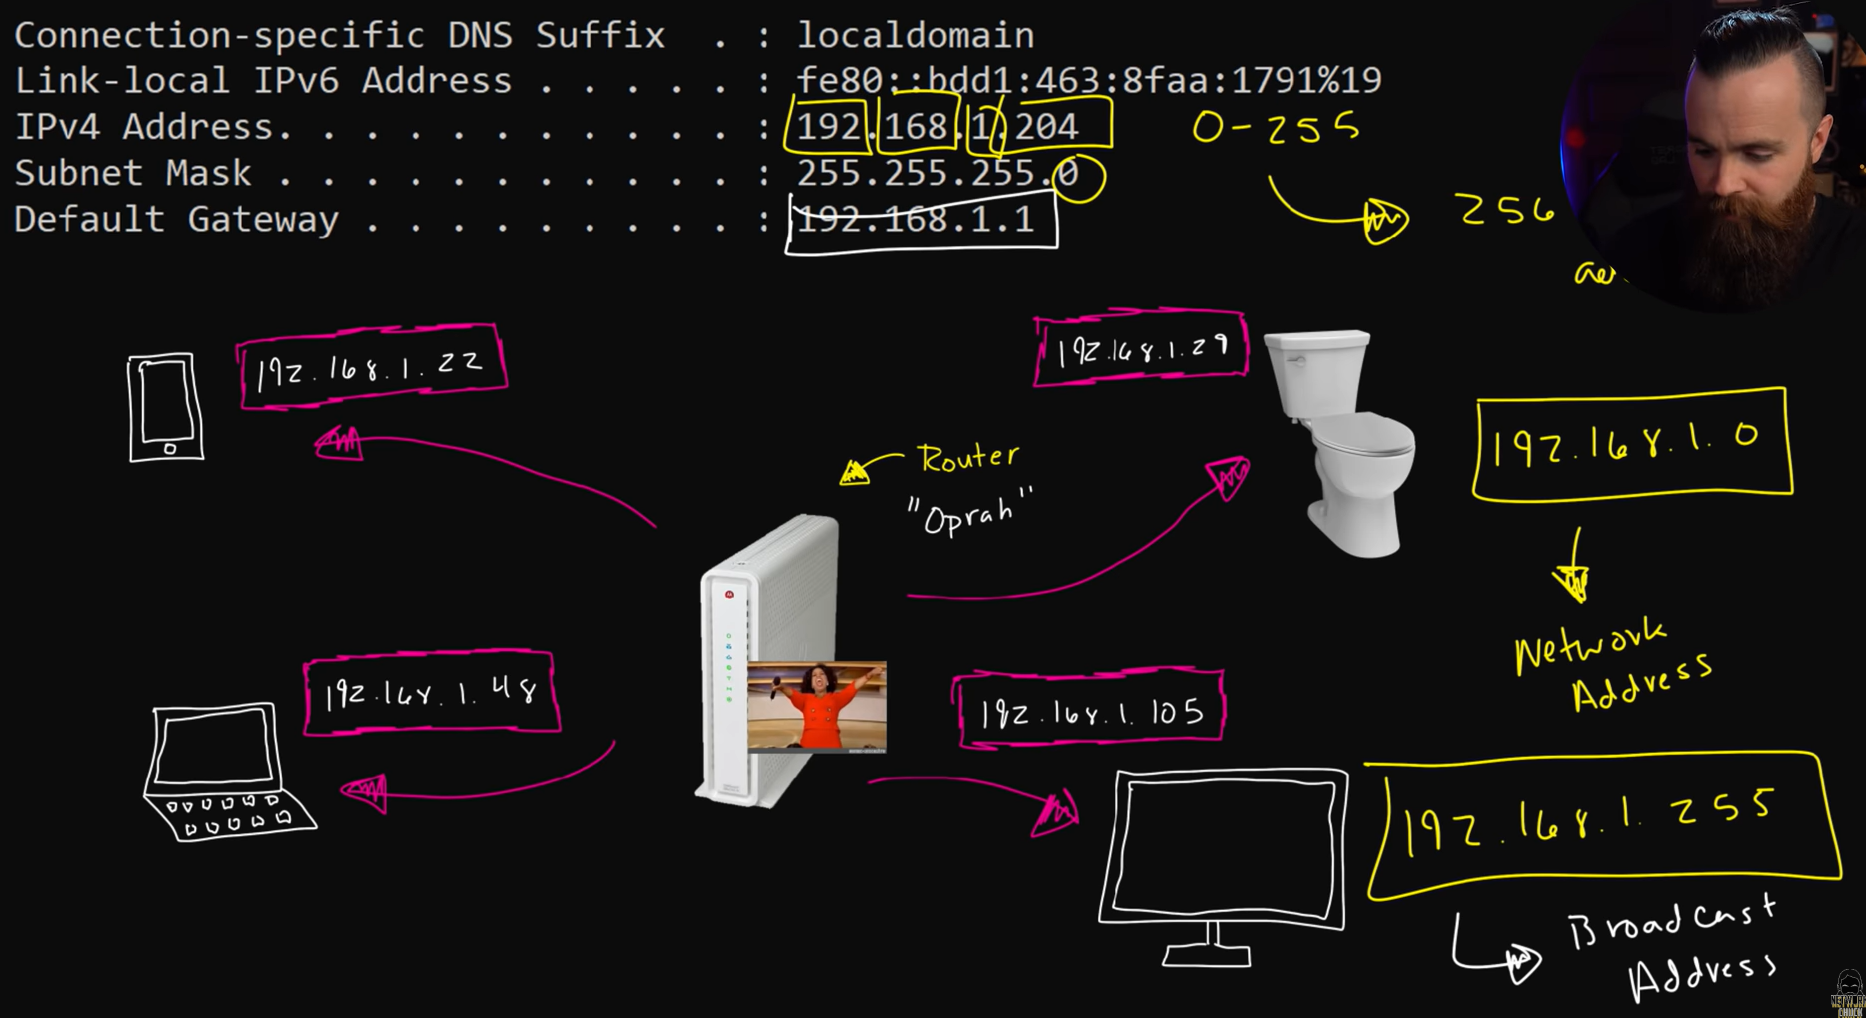 Connection-specific DNS Suffix . : localdomain
Link-local IPv6 Address . . . . . : fe80::bdd1:463:8faa:1791%19
IPv4 Address. . . . . . . . . . . : 192.168.1.204
0-255
Subnet Mask . . . . . . . . . . . : 255.255.255.0
Default Gateway . . . . . . . . . : 192.168.1.1
256
192.168.1.22
192.168.1.29
192.168.1.0
Router
"Oprah"
Network
Address
192.168.1.48
192.168.1.105
192.168.1.255
Broadcast
Address